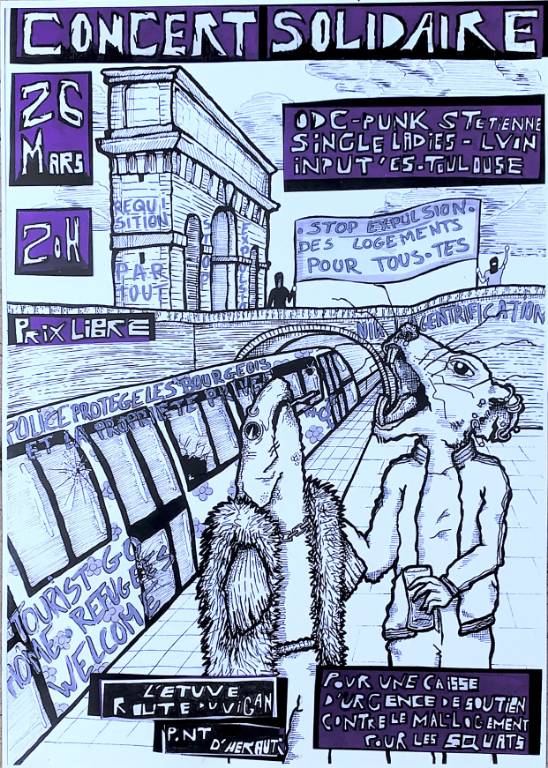 CONCERT SOLIDAIRE
26 MARS
20H
PRIX LIBRE
ODC-PUNK STETIENNE
SINGLE LADIES - LYON
INPUT'ES-TOULOUSE
REQUI
SITION
PAR
TOUT
STOP
.STOP EXPULSION.
DES LOGEMENTS
POUR TOUS.TES
GENTRIFICATION
POLICE PROTEGE LES BOURGEOIS
ET LA PROPRIETE PRIVEE
TOURIST GO
HOME REFUGEES
WELCOME
L'ETUVE
ROUTE DU VIGAN
PONT
D'HERAULT
POUR UNE CAISSE
D'URGENCE DE SOUTIEN
CONTRE LE MAL-LOGEMENT
POUR LES SQUATS